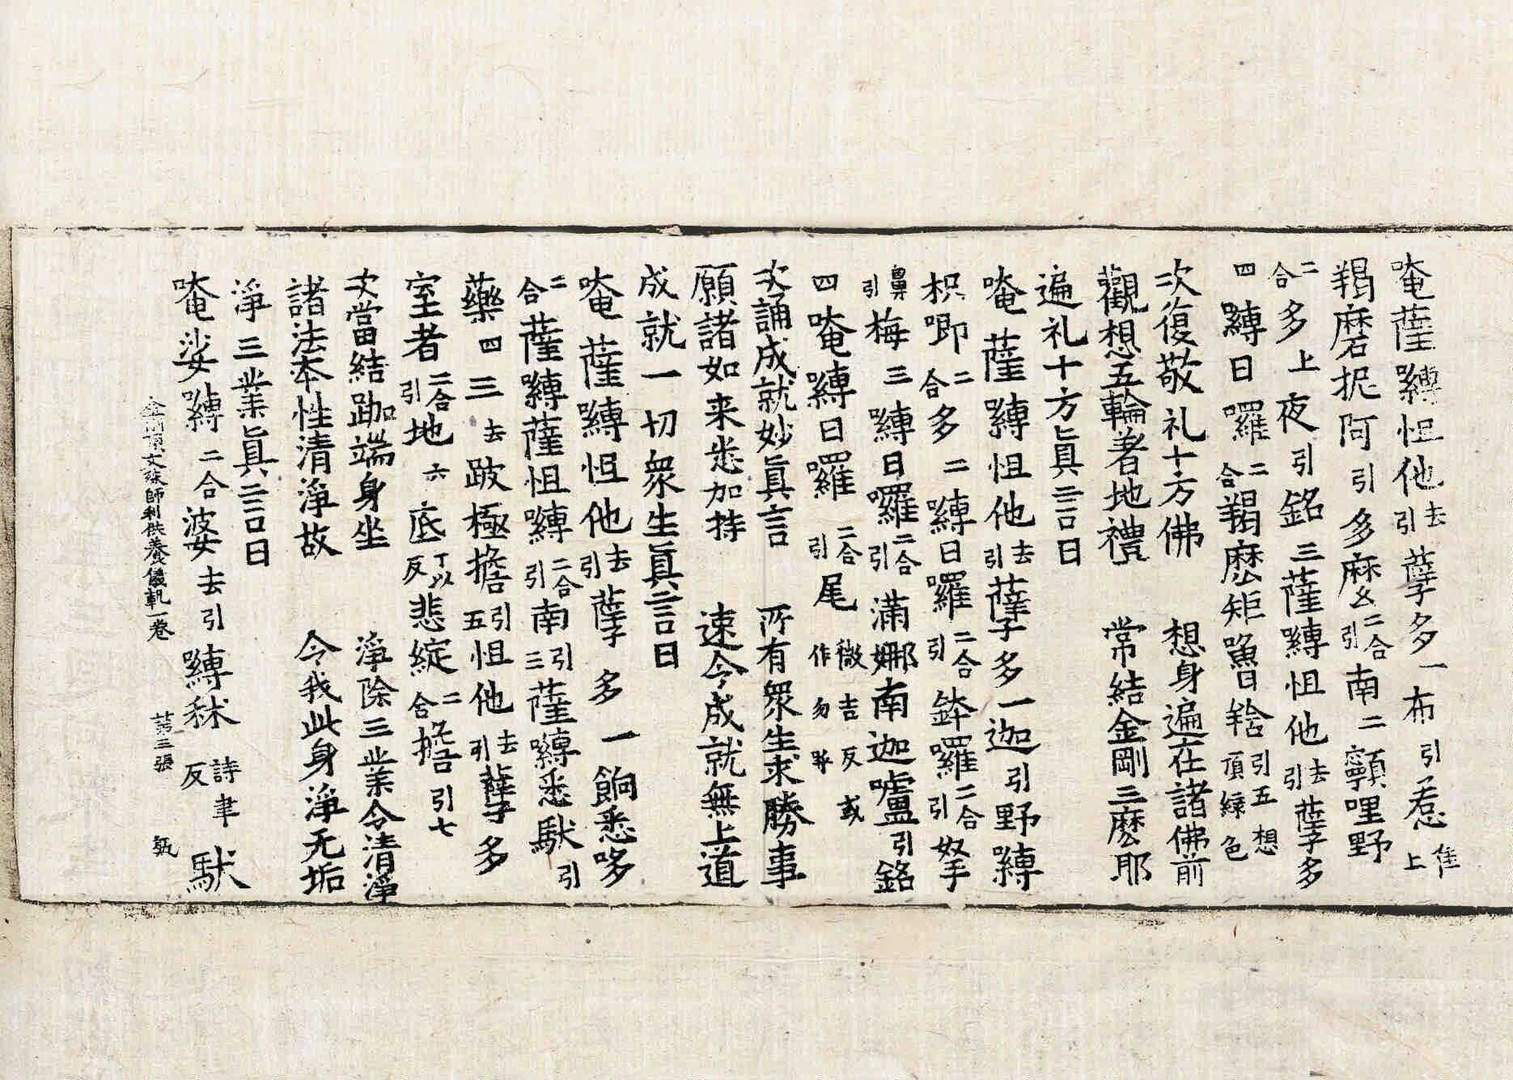 唵薩嚩怛他去引孽多一布引惹隹上
羯磨抳阿引多麽二合引南二顐哩野
二合多上夜引銘三薩嚩怛他去引孽多
四嚩日囉二合羯麽矩嚕日羚引五想頂緑色
次復敬礼十方佛　想身遍在諸佛前
觀想五輪著地禮　常結金剛三麽耶
遍礼十方眞言曰
唵薩嚩怛他去引孽多一迦引野嚩
枳唧二合多二嚩日囉二合引鉢囉二合引拏
鼻引梅三嚩日囉二合引滿娜南迦嚧引銘
四唵嚩日囉二合引尾微吉反或作勿
次誦成就妙眞言　所有衆生求勝事
願諸如来悉加持　速令成就無上道
成就一切衆生眞言曰
唵薩嚩怛他去引孽多一餉悉哆
二合薩嚩薩怛嚩二合引南引三薩嚩悉馱引
藥四三去跛極擔引五怛他去引孽多
室者二合引地六底丁以反悲綻二合擔引七
次當結跏端身坐　淨除三業令清淨
諸法本性清淨故　令我此身淨无垢
淨三業眞言曰
唵娑嚩二合婆去引嚩秫詩聿反馱
金剛頂文殊師利供養儀軌一卷　第三張　甄